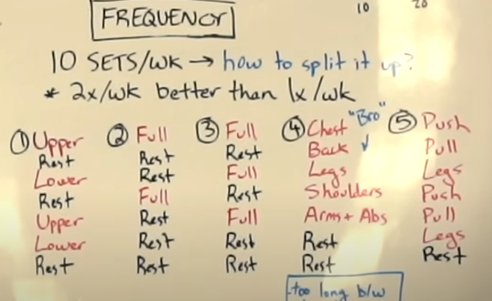 FREQUENCY
10
20
10 SETS/WK → how to split it up?
* 2x/wk better than 1x/wk
① Upper
Rest
Lower
Rest
Upper
Lower
Rest
② Full
Rest
Rest
Full
Rest
Rest
Rest
③ Full
Rest
Full
Rest
Full
Rest
Rest
④ Chest "Bro"
Back ↓
Legs
Shoulders
Arms + Abs
Rest
Rest
⑤ Push
Pull
Legs
Push
Pull
Legs
Rest
-too long b/w